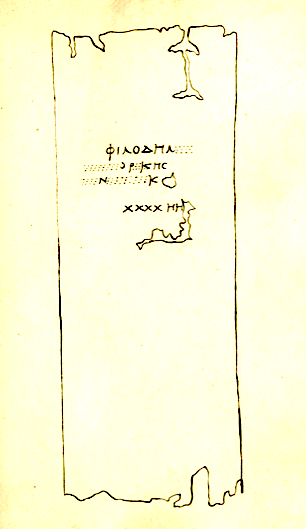 ΦΙΛΟΔΗΜ
ΟΡΙΚΗϹ
Ν Κ
ΧΧΧΧ ΗΗ